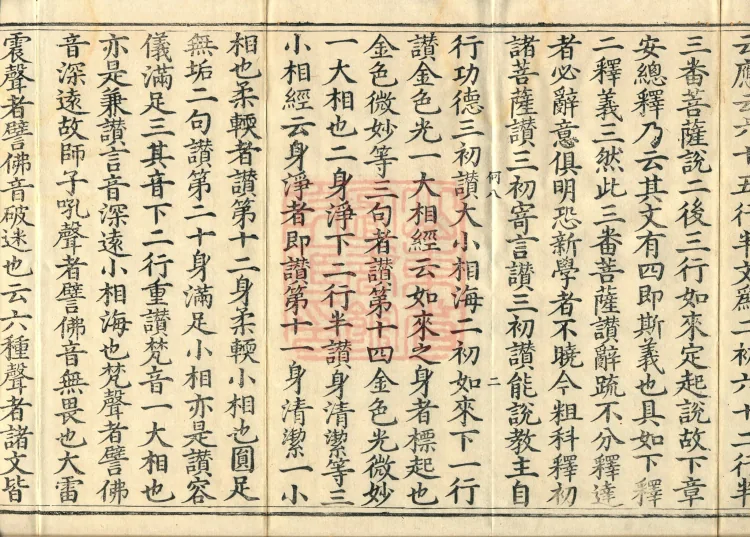 云應云六十五行判文爲二初六十二行判
三番菩薩說二後三行如來定起說故下章
安總釋乃云其文有四即斯義也具如下釋
二釋義三然此三番菩薩讃辭疏不分釋達
者必辭意俱明恐新學者不曉今粗科釋初
諸菩薩讃三初寄言讃三初讃能說教主自
何八
二
行功德三初讃大小相海二初如來下一行
讃金色光一大相經云如來之身者標起也
金色微妙等三句者讃第十四金色光微妙
一大相也二身淨下二行半讃身清潔等三
小相經云身淨者即讃第十一身清潔一小
相也柔輭者讃第十二身柔輭小相也圓足
無垢二句讃第二十身滿足小相亦是讃容
儀滿足三其音下二行重讃梵音一大相也
亦是兼讃言音深遠小相海也梵聲者譬佛
音深遠故師子吼聲者譬佛音無畏也大雷
震聲者譬佛音破迷也云六種聲者諸文皆